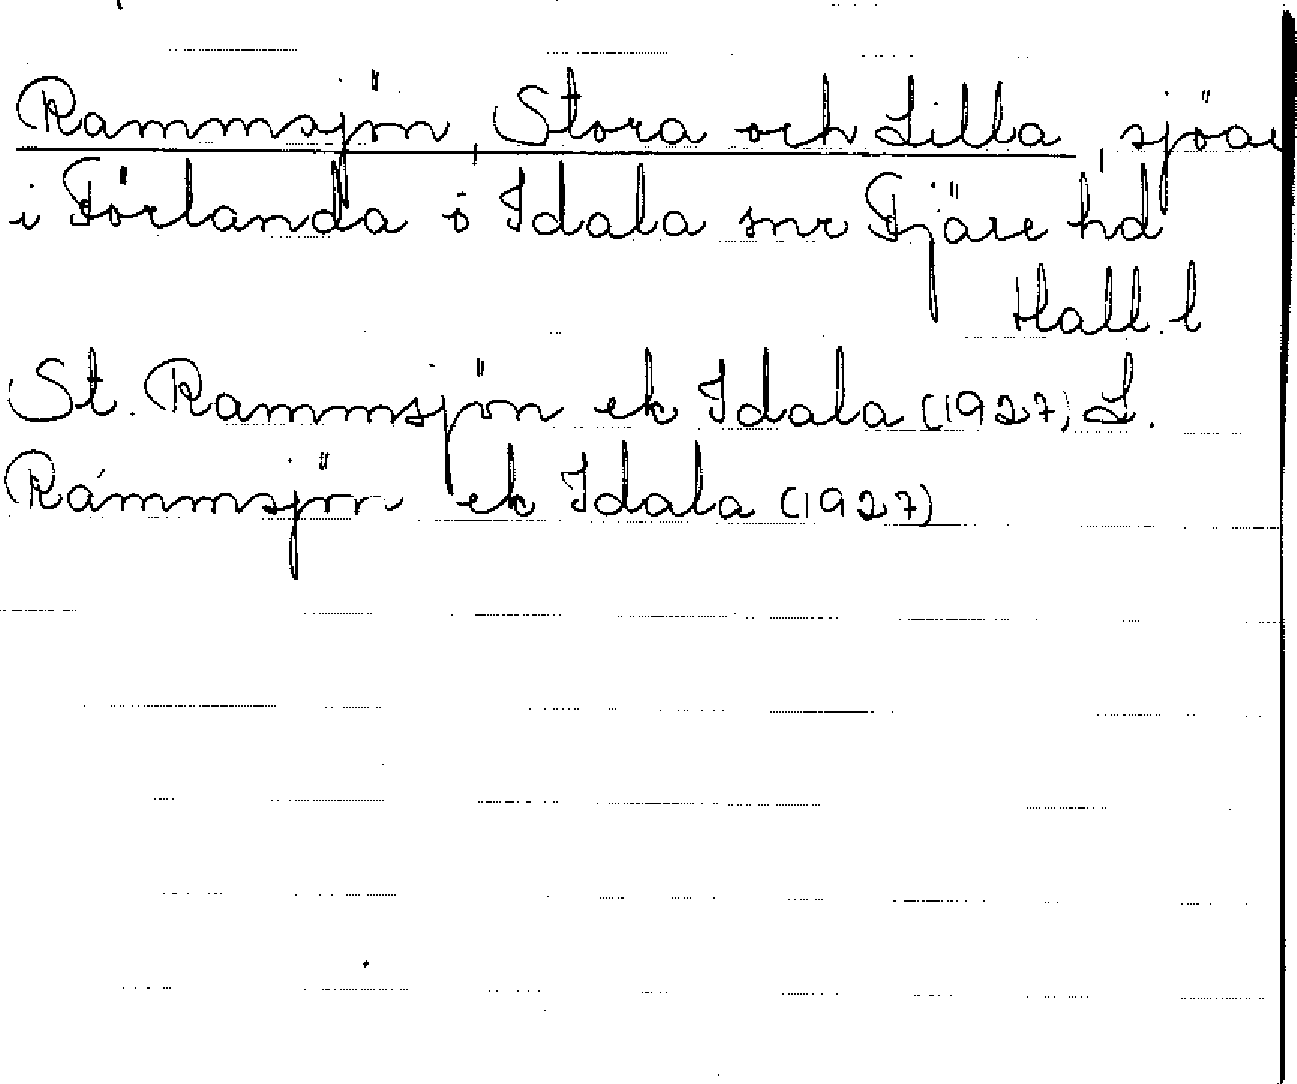 Rammsjön, Stora och Lilla, sjöar
i Förlanda o Idala snr Fjäre hd
Hall. l
St. Rammsjön ek Idala (1927) L.
Rammsjön ek Idala (1927)